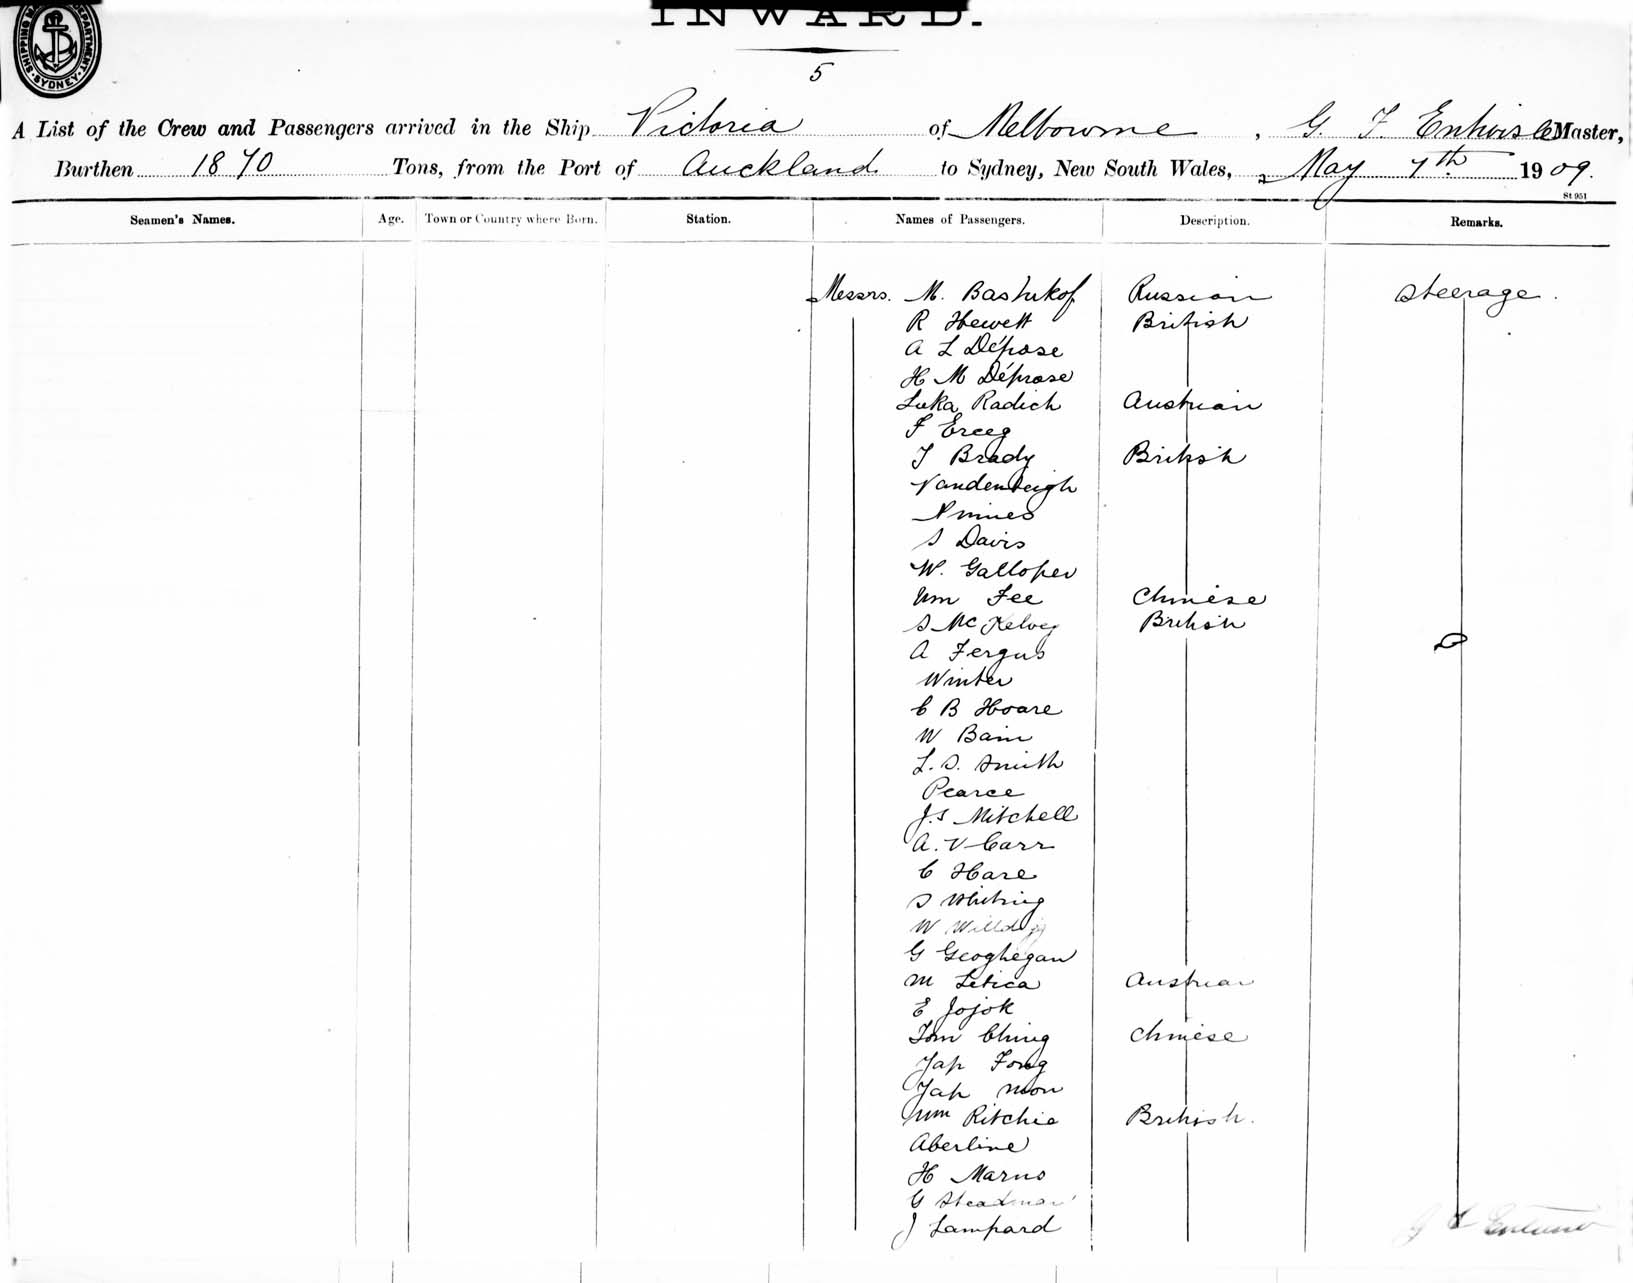 INWARD.
SHIPPING DEPARTMENT SYDNEY
5
A List of the Crew and Passengers arrived in the Ship Victoria of Melbourne, G. T. Entwisle Master,
Burthen 1870 Tons, from the Port of Auckland to Sydney, New South Wales, May 7th 1909.
St 951
Seamen's Names. Age. Town or Country where Born. Station. Names of Passengers. Description. Remarks.
Messrs. M. Bashukof Russian Steerage.
R Hewett British
A L Déprose
H M Déprose
Luka Radich Austrian
F Erceg
T Brady British
Vandenbeigh
S Davis
W. Galloper
Wm Fee Chinese
S McKelvey British
A Fergus
Winter
C B Hoare
W Bain
L. S. Smith
Pearce
J. S Mitchell
A. V Carr
C Hare
S Whiting
W
G Geoghegan
M Letica Austrian
E Jojok
Tom Ching Chinese
Yap Fong
Yap Mon
Wm Ritchie British.
Aberline
H Marus
G Steadman
J Lampard